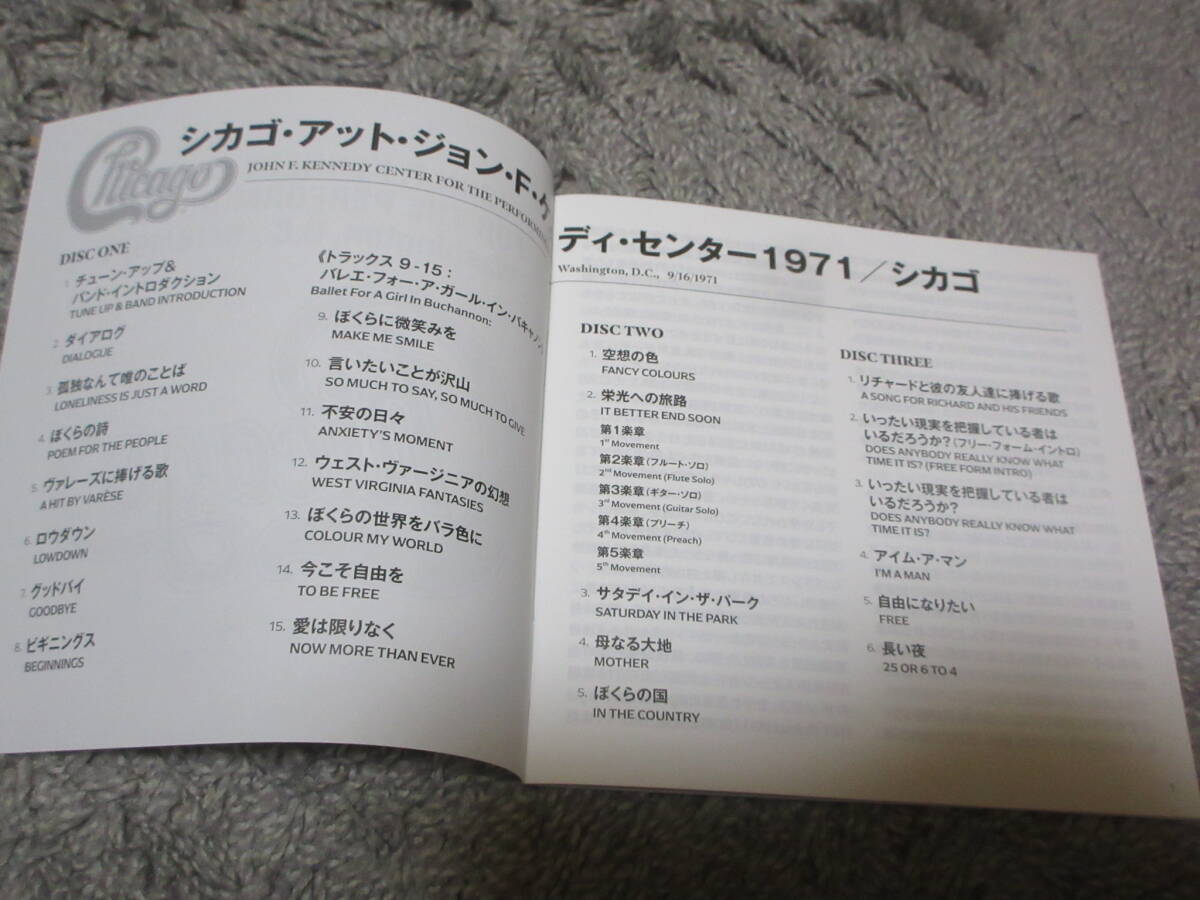 Chicago
シカゴ・アット・ジョン・F・ケ
JOHN F. KENNEDY CENTER FOR THE PERFORMING
DISC ONE
1. チューン・アップ&
バンド・イントロダクション
TUNE UP & BAND INTRODUCTION
2. ダイアログ
DIALOGUE
3. 孤独なんて唯のことば
LONELINESS IS JUST A WORD
4. ぼくらの詩
POEM FOR THE PEOPLE
5. ヴァレーズに捧げる歌
A HIT BY VARÈSE
6. ロウダウン
LOWDOWN
7. グッドバイ
GOODBYE
8. ビギニングス
BEGINNINGS
《トラックス 9-15:
バレエ・フォー・ア・ガール・イン・バキャノン》
Ballet For A Girl In Buchannon:
9. ぼくらに微笑みを
MAKE ME SMILE
10. 言いたいことが沢山
SO MUCH TO SAY, SO MUCH TO GIVE
11. 不安の日々
ANXIETY'S MOMENT
12. ウェスト・ヴァージニアの幻想
WEST VIRGINIA FANTASIES
13. ぼくらの世界をバラ色に
COLOUR MY WORLD
14. 今こそ自由を
TO BE FREE
15. 愛は限りなく
NOW MORE THAN EVER
ディ・センター1971/シカゴ
Washington, D.C., 9/16/1971
DISC TWO
1. 空想の色
FANCY COLOURS
2. 栄光への旅路
IT BETTER END SOON
第1楽章
1st Movement
第2楽章(フルート・ソロ)
2nd Movement (Flute Solo)
第3楽章(ギター・ソロ)
3rd Movement (Guitar Solo)
第4楽章(プリーチ)
4th Movement (Preach)
第5楽章
5th Movement
3. サタデイ・イン・ザ・パーク
SATURDAY IN THE PARK
4. 母なる大地
MOTHER
5. ぼくらの国
IN THE COUNTRY
DISC THREE
1. リチャードと彼の友人達に捧げる歌
A SONG FOR RICHARD AND HIS FRIENDS
2. いったい現実を把握している者は
いるだろうか?(フリー・フォーム・イントロ)
DOES ANYBODY REALLY KNOW WHAT
TIME IT IS? (FREE FORM INTRO)
3. いったい現実を把握している者は
いるだろうか?
DOES ANYBODY REALLY KNOW WHAT
TIME IT IS?
4. アイム・ア・マン
I'M A MAN
5. 自由になりたい
FREE
6. 長い夜
25 OR 6 TO 4